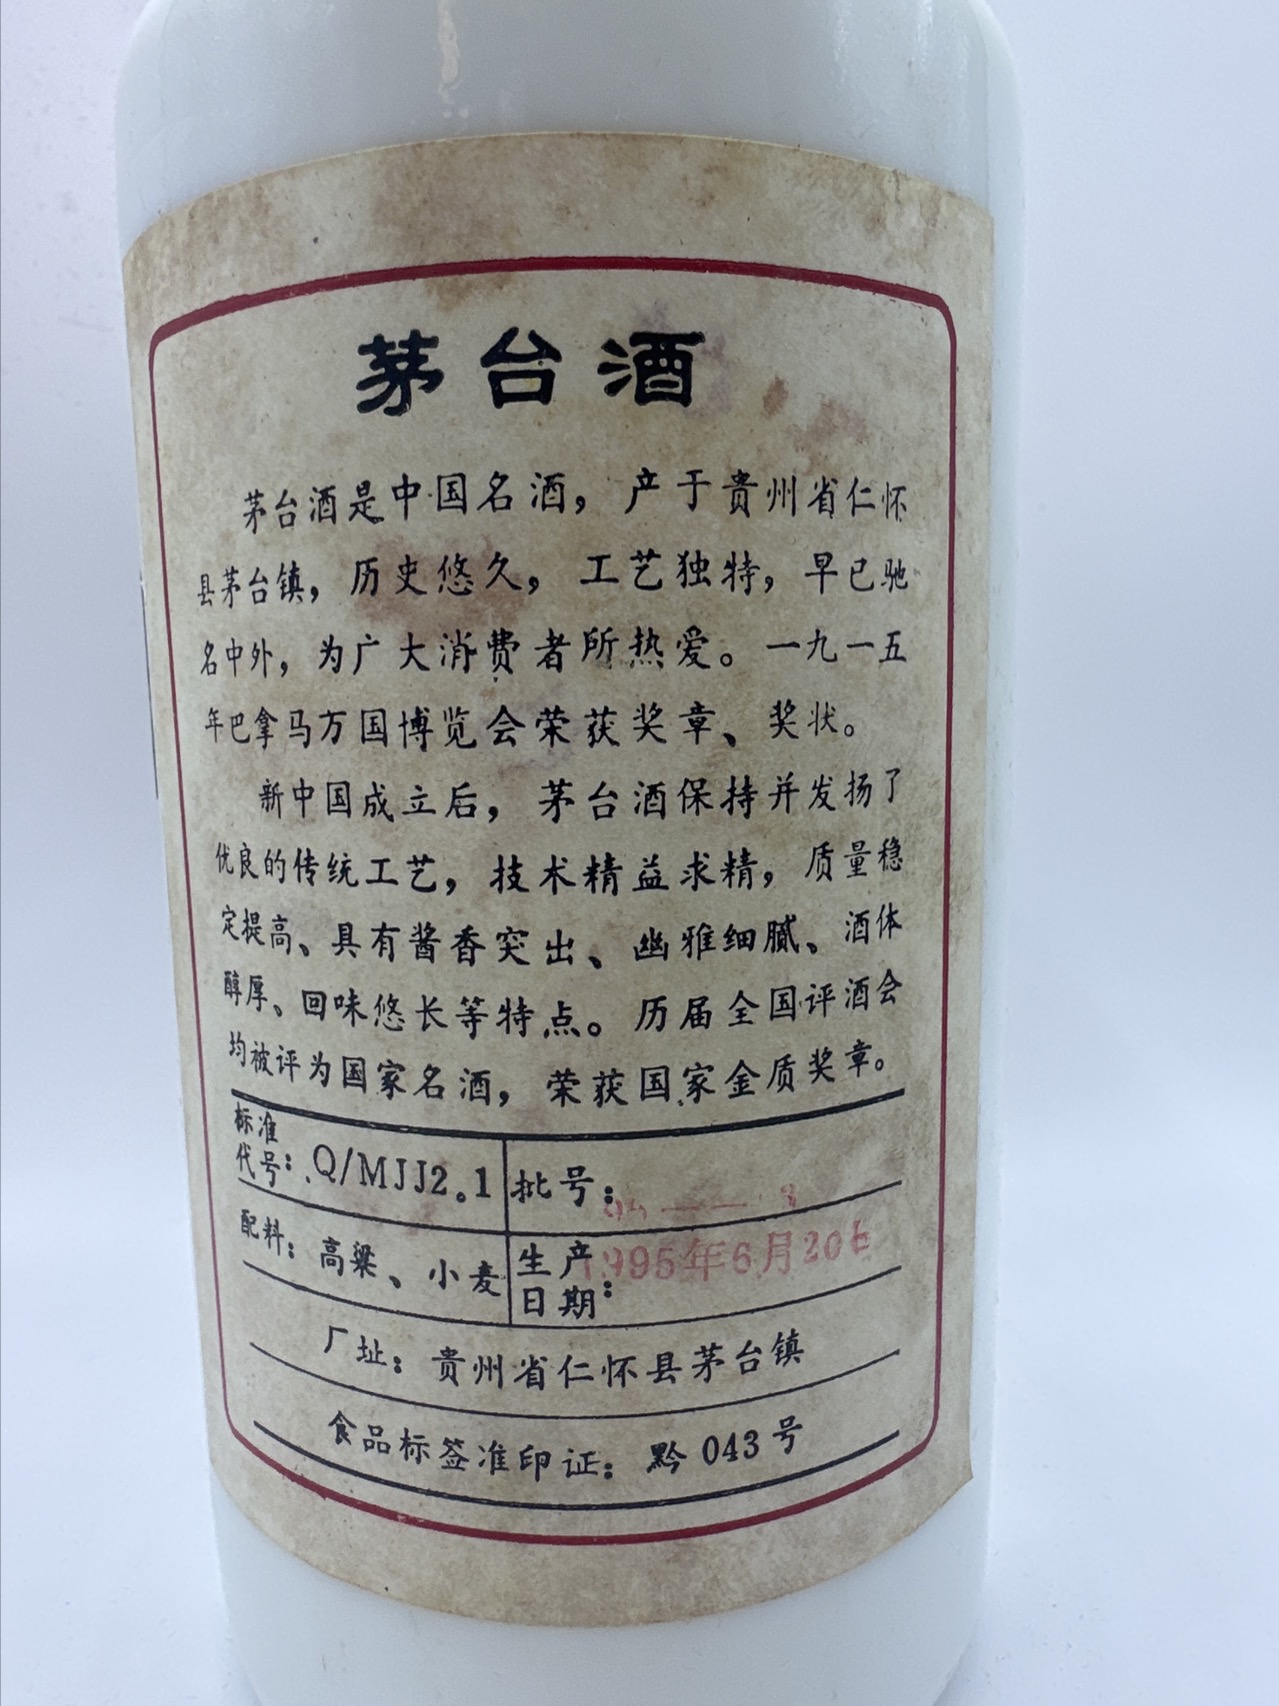 茅台酒
茅台酒是中国名酒，产于贵州省仁怀
县茅台镇，历史悠久，工艺独特，早已驰
名中外，为广大消费者所热爱。一九一五
年巴拿马万国博览会荣获奖章、奖状。
新中国成立后，茅台酒保持并发扬了
优良的传统工艺，技术精益求精，质量稳
定提高、具有酱香突出、幽雅细腻、酒体
醇厚、回味悠长等特点。历届全国评酒会
均被评为国家名酒，荣获国家金质奖章。
标准代号：Q/MJJ2.1 批号：
配料：高粱、小麦 生产日期：1995年6月20日
厂址：贵州省仁怀县茅台镇
食品标签准印证：黔043号